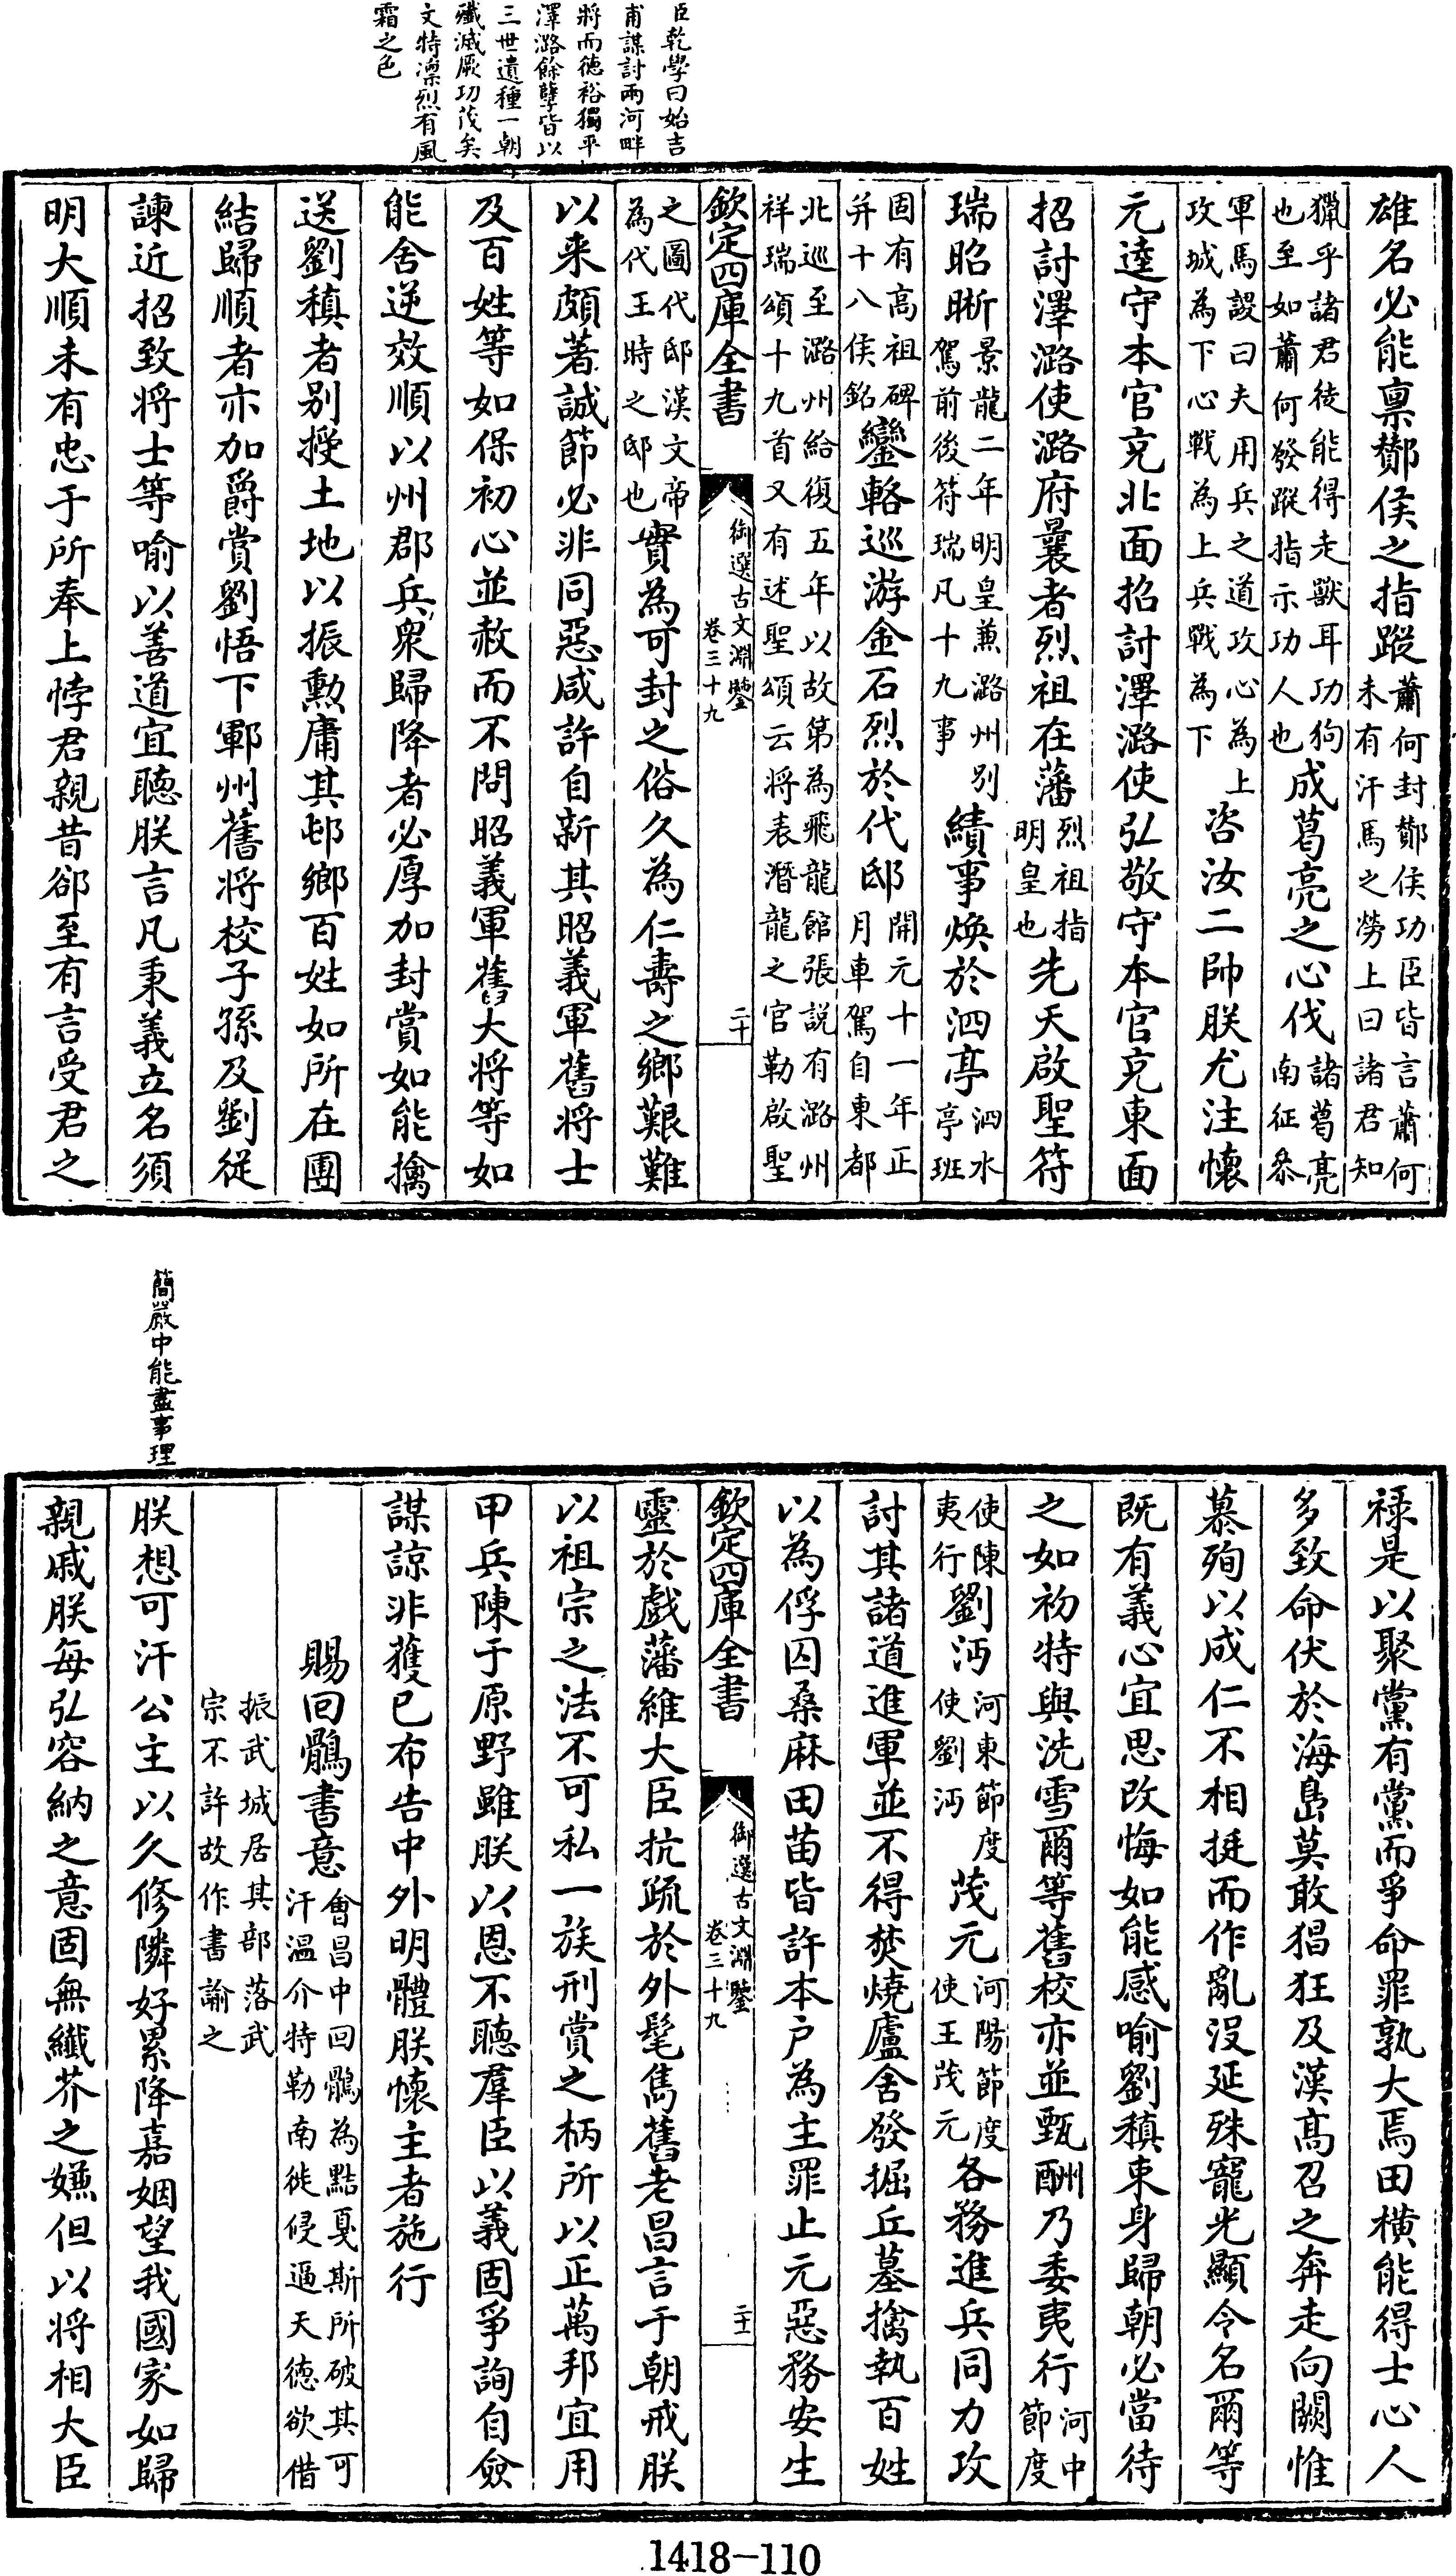 臣乾學曰始吉
甫謀討兩河畔
將而徳裕獨平
澤潞餘孽皆以
三世遺種一朝
殲滅厥功茂矣
文特凛烈有風
霜之色
雄名必能禀酇侯之指蹤蕭何封酇侯功臣皆言蕭何未有汗馬之勞上曰諸君知
獵乎諸君徒能得走獸耳功狗也至如蕭何發蹤指示功人也成葛亮之心伐諸葛亮南征叅
軍馬謖曰夫用兵之道攻心為上攻城為下心戰為上兵戰為下咨汝二帥朕尤注懷
元逵守本官充北面招討澤潞使弘敬守本官充東面
招討澤潞使潞府曩者烈祖在藩烈祖指明皇也先天啟聖符
瑞昭晰景龍二年明皇兼潞州别駕前後符瑞凡十九事績事煥於泗亭泗水亭班
固有高祖碑并十八侯銘鑾輅巡游金石烈於代邸開元十一年正月車駕自東都
北巡至潞州給復五年以故第為飛龍館張説有潞州祥瑞頌十九首又有述聖頌云将表潛龍之官勒啟聖
欽定四庫全書
御選古文淵鑒
卷三十九
二十
之圖代邸漢文帝為代王時之邸也實為可封之俗久為仁壽之鄉艱難
以来頗著誠節必非同惡咸許自新其昭義軍舊将士
及百姓等如保初心並赦而不問昭義軍舊大将等如
能舍逆效順以州郡兵衆歸降者必厚加封賞如能擒
送劉稹者别授土地以振勳庸其邨鄉百姓如所在團
結歸順者亦加爵賞劉悟下鄆州舊将校子孫及劉從
諫近招致将士等喻以善道宜聽朕言凡秉義立名須
明大順未有忠于所奉上悖君親昔郤至有言受君之
簡嚴中能盡事理
禄是以聚黨有黨而爭命罪孰大焉田横能得士心人
多致命伏於海島莫敢猖狂及漢髙召之奔走向闕惟
慕殉以成仁不相挻而作亂沒延殊寵光顯令名爾等
既有義心宜思改悔如能感喻劉稹束身歸朝必當待
之如初特與洗雪爾等舊校亦並甄酬乃委夷行河中節度
使陳夷行劉沔河東節度使劉沔茂元河陽節度使王茂元各務進兵同力攻
討其諸道進軍並不得焚燒廬舍發掘丘墓擒執百姓
以為俘囚桑麻田苗皆許本户為主罪止元惡務安生
欽定四庫全書
御選古文淵鑒
卷三十九
二十一
靈於戲藩維大臣抗疏於外髦雋舊老昌言于朝戒朕
以祖宗之法不可私一族刑賞之柄所以正萬邦宜用
甲兵陳于原野雖朕以恩不聽羣臣以義固爭詢自僉
謀諒非獲已布告中外明體朕懷主者施行
賜回鶻書意會昌中回鶻為黠戛斯所破其可汗温介特勒南徙侵逼天徳欲借
振武城居其部落武宗不許故作書諭之
朕想可汗公主以久修隣好累降嘉姻望我國家如歸
親戚朕每弘容納之意固無纎芥之嫌但以将相大臣
1418-110